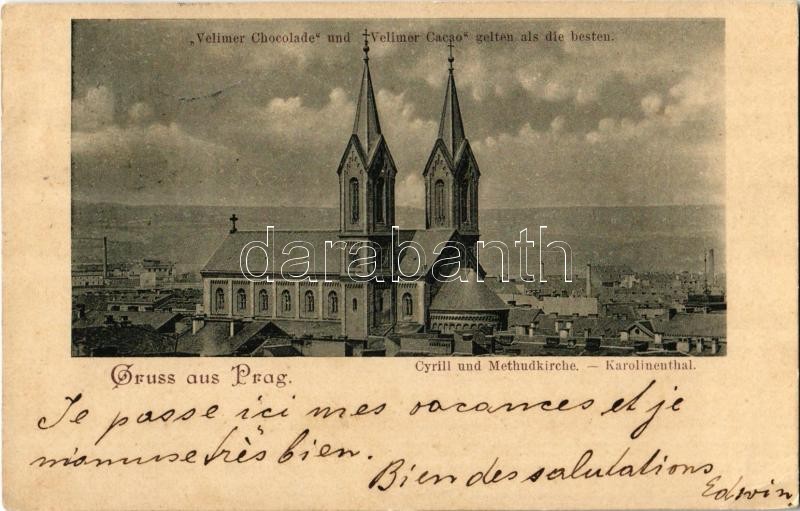 „Velimer Chocolade“ und „Velimer Cacao“ gelten als die besten.
darabanth
Gruss aus Prag.
Cyrill und Methudkirche. — Karolinenthal.
Je passe ici mes vacances et je
m'amuse très bien.
Bien des salutations
Edwin.